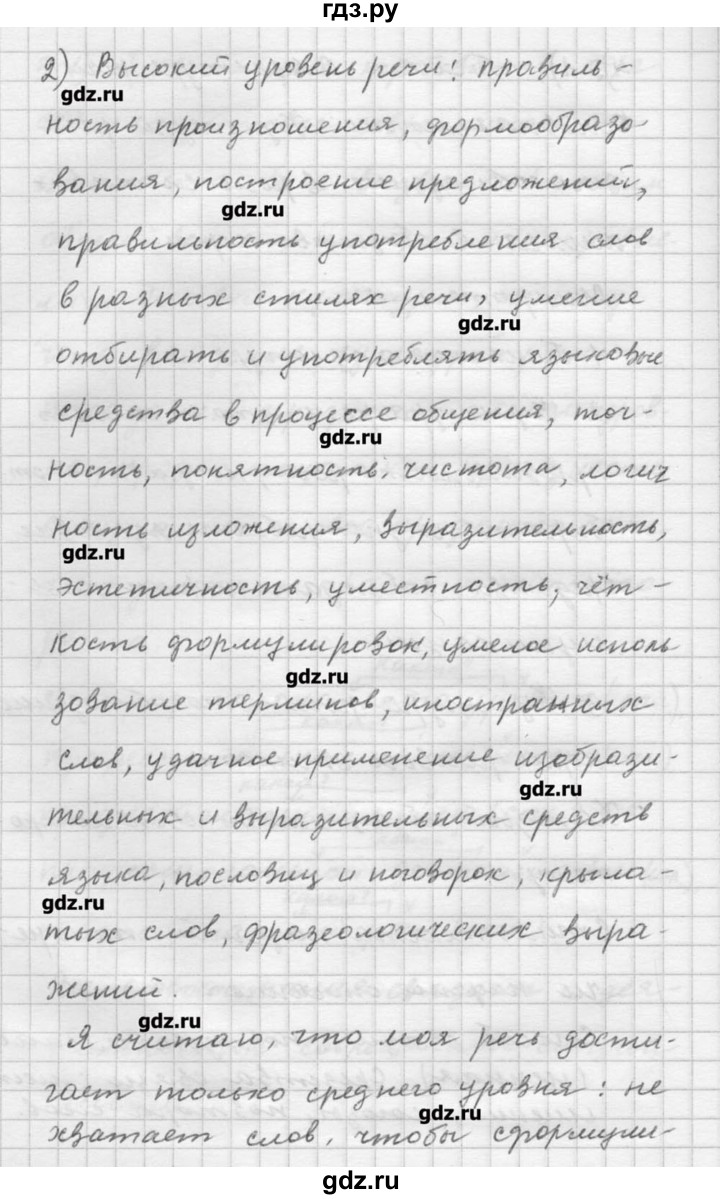 гдз.ру
2) Высокий уровень речи: правиль-
gdz.ru
ность произношения, формообразо
вания, построение предложений,
gdz.ru
правильность употребления слов
в разных стилях речи, умение
gdz.ru
отбирать и употреблять языковые
средства в процессе общения, точ-
gdz.ru
ность, понятность, чистота, логич
ность изложения, выразительность,
gdz.ru
эстетичность, уместность, чёт-
кость формулировок, умелое исполь
gdz.ru
зование терминов, иностранных
слов, удачное применение изобрази-
gdz.ru
тельных и выразительных средств
языка, пословиц и поговорок, крыла-
gdz.ru
тых слов, фразеологических выра-
жений.
gdz.ru
Я считаю, что моя речь дости-
гает только среднего уровня: не
gdz.ru
хватает слов, чтобы сформули-
gdz.ru